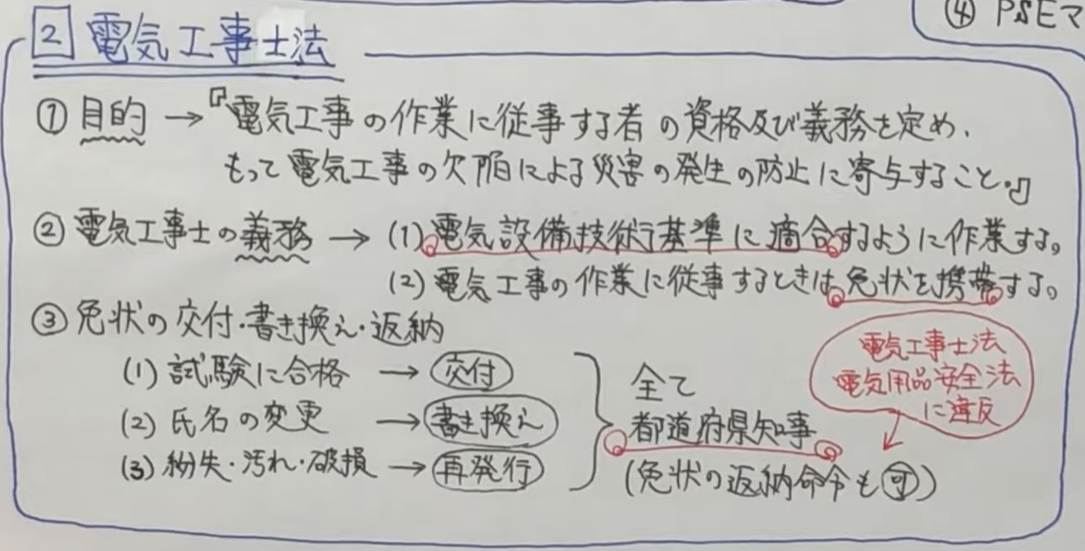 ④ PSEマ
2 電気工事士法
① 目的 → 『電気工事の作業に従事する者の資格及び義務を定め、
もって電気工事の欠陥による災害の発生の防止に寄与すること。』
② 電気工事士の義務 → (1) 電気設備技術基準に適合するように作業する。
(2) 電気工事の作業に従事するときは、免状を携帯する。
③ 免状の交付・書き換え・返納
(1) 試験に合格 → 交付
(2) 氏名の変更 → 書き換え
(3) 紛失・汚れ・破損 → 再発行
全て
都道府県知事
(免状の返納命令も可)
電気工事士法
電気用品安全法
に違反